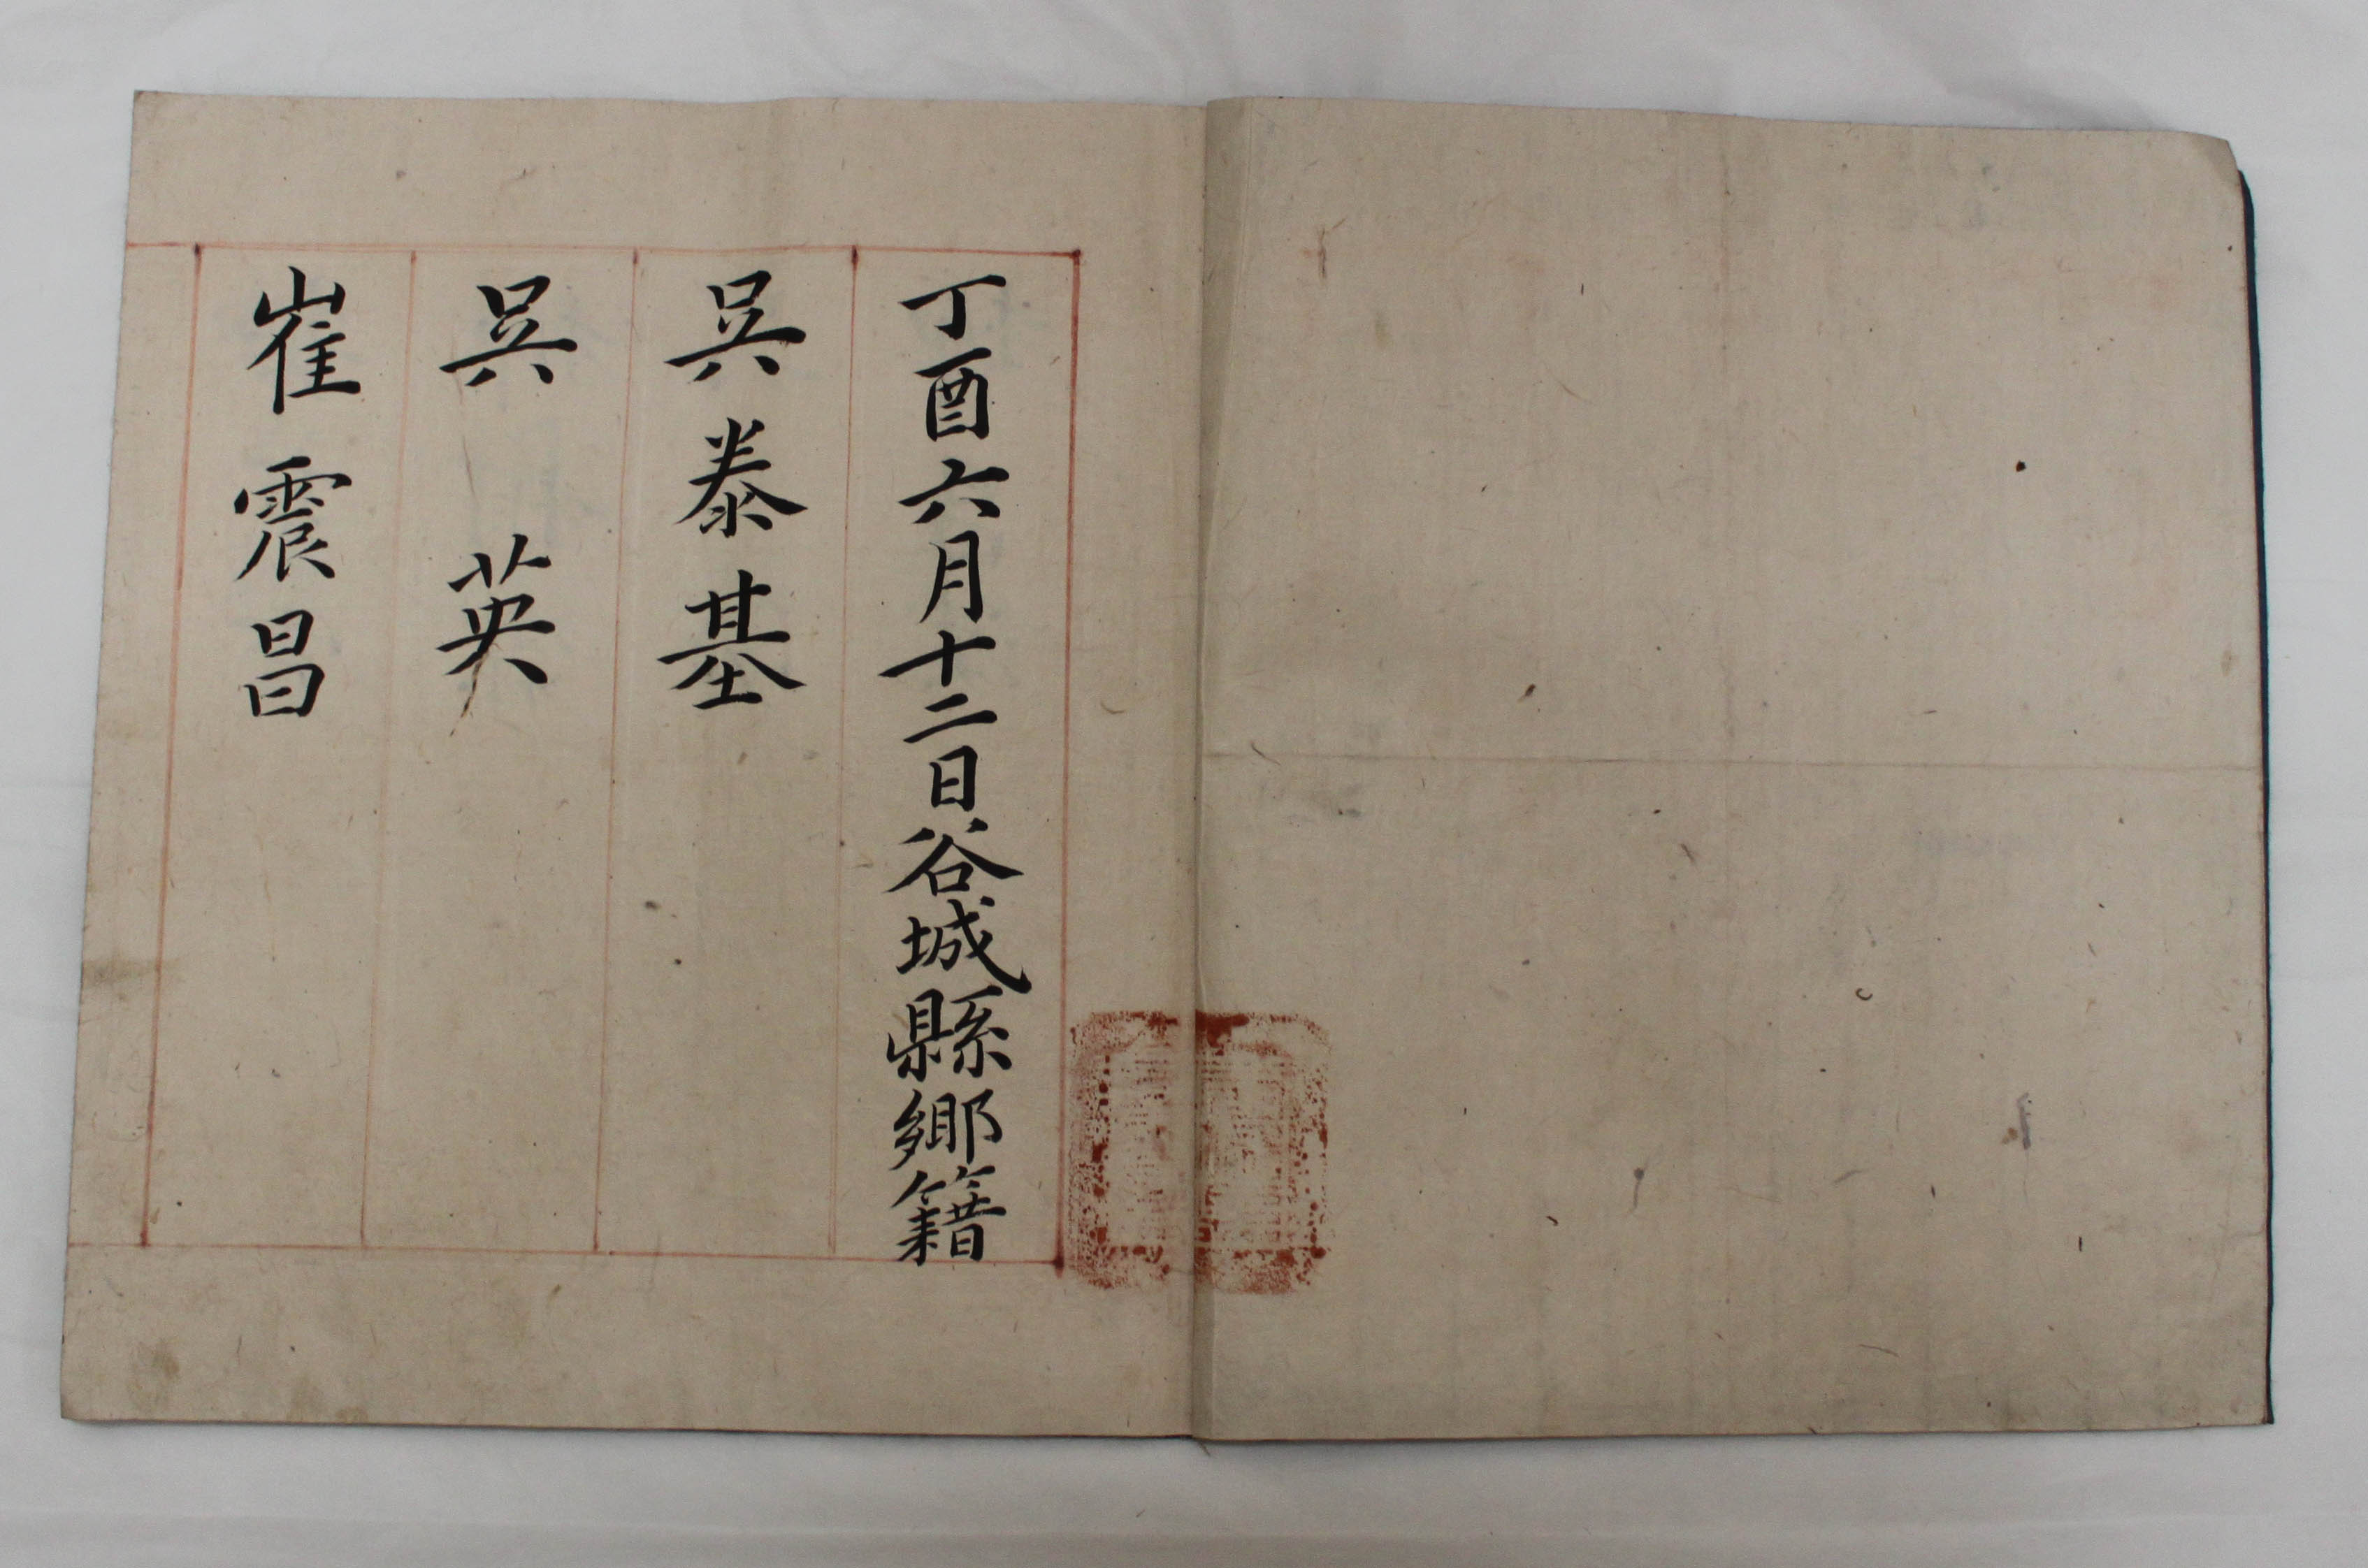 丁酉六月十二日谷城縣鄉籍
吳泰基
吳英
崔震昌